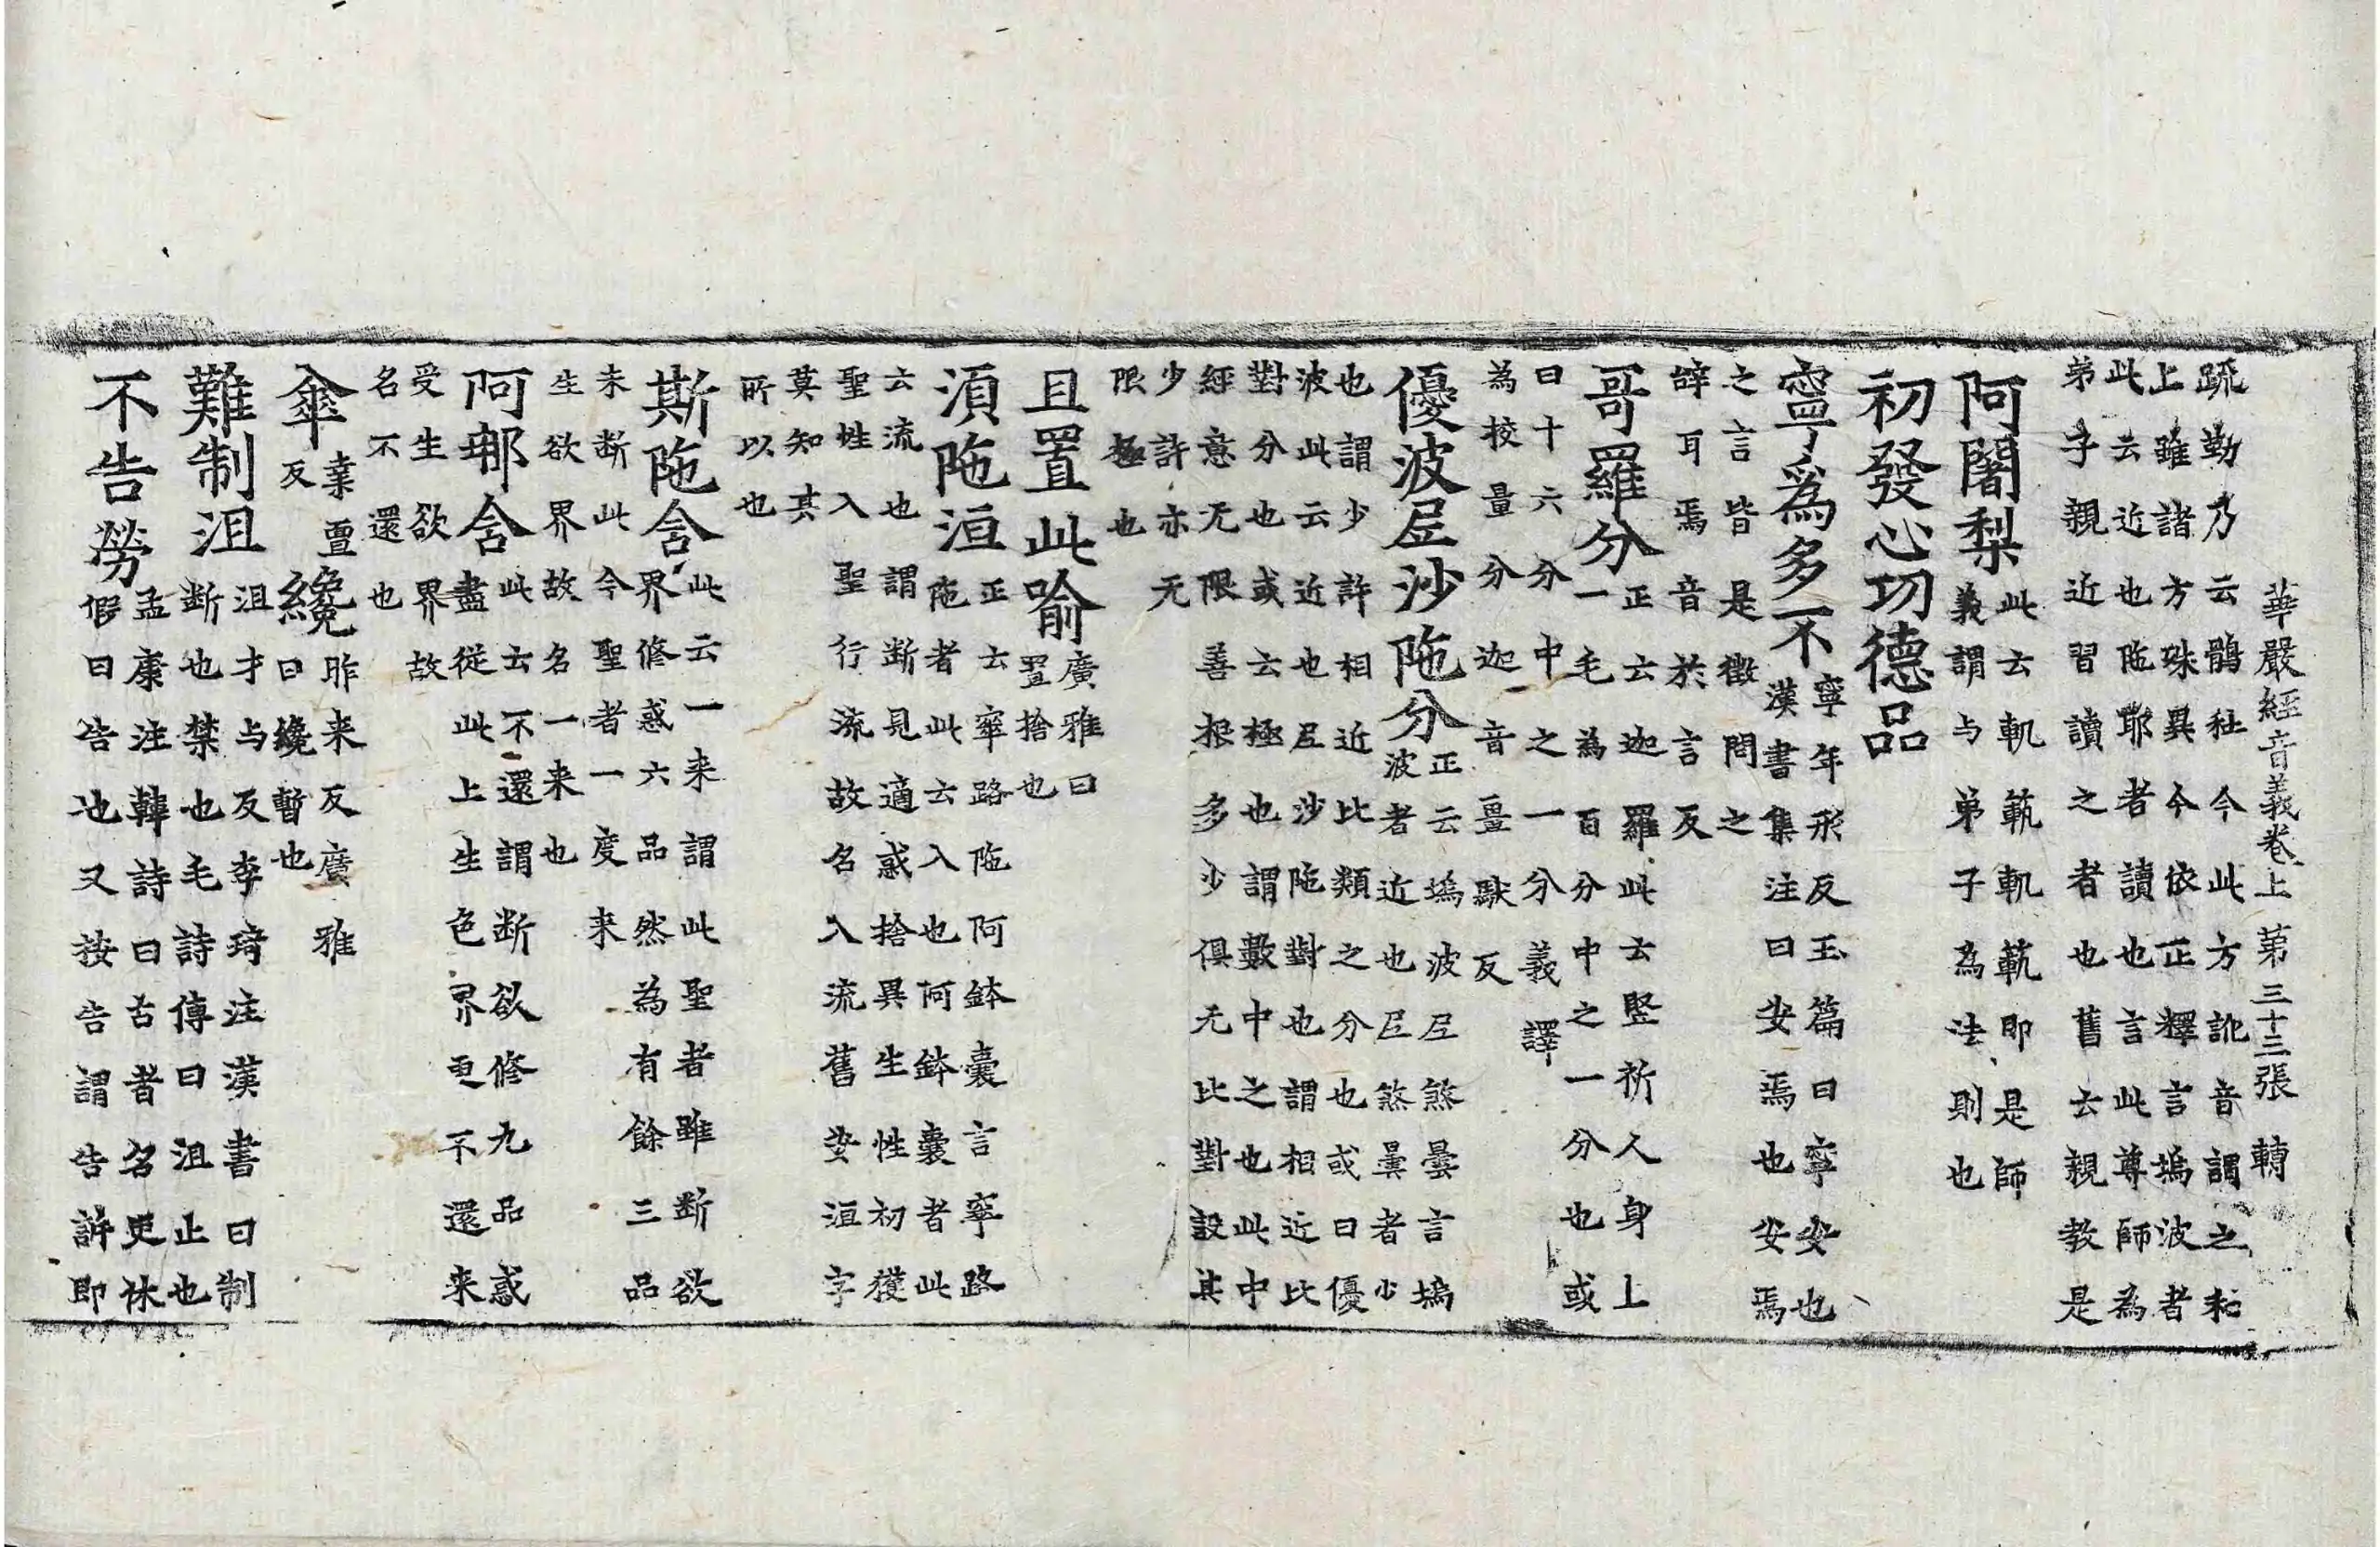 華嚴經音義卷上 第三十三張 轉
疏勒乃云鶻社今此方訛音謂之和
上雖諸方殊異今依正釋言塢波者
此云近也陁耶者讀也言此尊師為
弟子親近習讀之者也舊云親教是
阿闍梨 此云軌範軌範即是師
義謂与弟子為法則也
初發心功德品
寧爲多不 寧年形反玉篇曰寧安也
漢書集注曰安焉也安焉
之言皆是徵問之
辝耳焉音於言反
哥羅分 正云迦羅此云竪祈人身上
一毛為百分中之一分也或
曰十六分中之一分義譯
為校量分迦音畺馱反
優波尼沙陁分 正云塢波尼煞曇言塢
波者近也尼煞曇者少
也謂少許相近比類之分也或曰優
波此云近也尼沙陁對也謂相近比
對分也或云極也謂數中之也此中
經意无限善根多少俱无比對設其
少許亦无
限極也
且置此喻 廣雅曰
置捨也
湏陁洹 正云窣路陁阿鉢囊言窣路
陁者此云入也阿鉢囊者此
云流也謂断見適惑捨異生性初獲
聖性入聖行流故名入流舊安洹字
莫知其
所以也
斯陁含 此云一来謂此聖者雖断欲
界修惑六品然為有餘三品
未断此今聖者一度来
生欲界故名一来也
阿那含 此云不還謂断欲修九品惑
盡從此上生色界更不還来
受生欲界故
名不還也
傘 桒亶
反 纔 昨来反廣雅
曰纔暫也
難制沮 沮才与反李琦注漢書曰制
断也禁也毛詩傳曰沮止也
不告勞 孟康注韓詩曰古者名吏休
假曰告也又按告謂告訴即